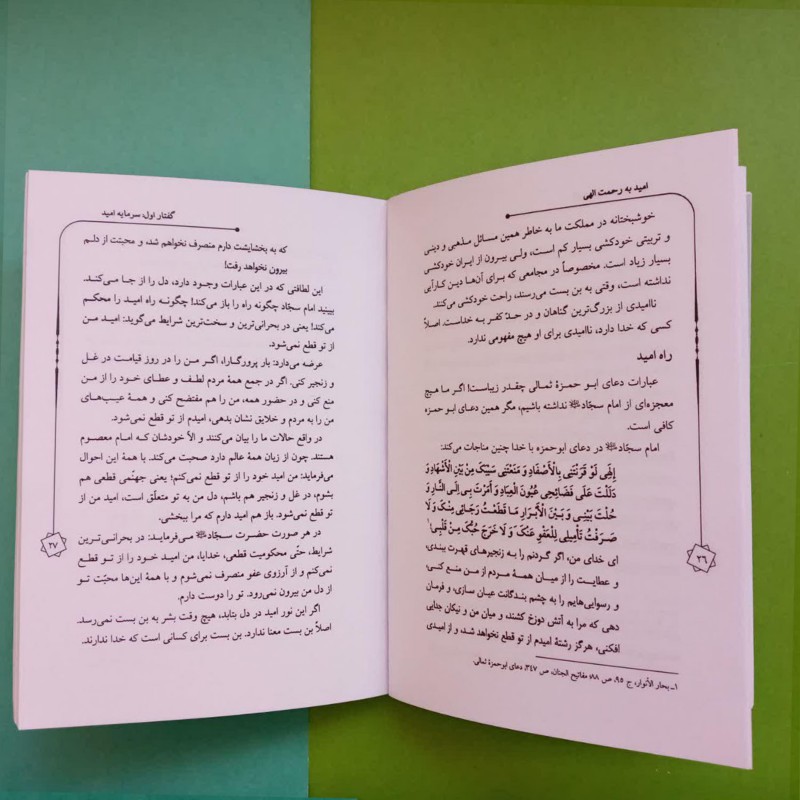 امید به رحمت الهی
خوشبختانه در مملکت ما به خاطر همین مسائل مذهبی و دینی
و تربیتی خودکشی بسیار کم است، ولی بیرون از ایران خودکشی
بسیار زیاد است. مخصوصاً در مجامعی که برای آن‌ها دین کارآیی
نداشته است، وقتی به بن بست می‌رسند، راحت خودکشی می‌کنند.
ناامیدی از بزرگ‌ترین گناهان و در حدّ کفر به خداست. اصلاً
کسی که خدا دارد، ناامیدی برای او هیچ مفهومی ندارد.
راه امید
عبارات دعای ابو حمزهٔ ثمالی چقدر زیباست! اگر ما هیچ
معجزه‌ای از امام سجّاد نداشته باشیم، مگر همین دعای ابو حمزه
کافی است.
امام سجّاد در دعای ابوحمزه با خدا چنین مناجات می‌کند:
إِلٰهِي لَوْ قَرَنْتَنِي بِالْأَصْفَادِ وَ مَنَعْتَنِي سَيْبَكَ مِنْ بَيْنِ الْأَشْهَادِ وَ
دَلَلْتَ عَلَى فَضَائِحِي عُيُونَ الْعِبَادِ وَ أَمَرْتَ بِي إِلَى النَّارِ وَ
حُلْتَ بَيْنِي وَ بَيْنَ الْأَبْرَارِ مَا قَطَعْتُ رَجَائِي مِنْكَ وَ لَا
صَرَفْتُ تَأْمِيلِي لِلْعَفْوِ عَنْكَ وَ لَا خَرَجَ حُبُّكَ مِنْ قَلْبِي؛۱
ای خدای من، اگر گردنم را به زنجیرهای قهرت ببندی،
و عطایت را از میان همهٔ مردم از من منع کنی،
و رسوایی‌هایم را به چشم بندگانت عیان سازی، و فرمان
دهی که مرا به آتش دوزخ کشند، و میان من و نیکان جدایی
افکنی، هرگز رشتهٔ امیدم از تو قطع نخواهد شد، و از امیدی
۱ـ بحار الأنوار، ج ۹۵، ص ۸۸؛ مفاتیح الجنان، ص ۳۴۷، دعای ابوحمزهٔ ثمالی.
۲۶
گفتار اول، سرمایه امید
که به بخشایشت دارم منصرف نخواهم شد، و محبّت از دلم
بیرون نخواهد رفت!
این لطافتی که در این عبارات وجود دارد، دل را از جا می‌کند.
ببینید امام سجّاد چگونه راه را باز می‌کند! چگونه راه امید را محکم
می‌کند! یعنی در بحرانی‌ترین و سخت‌ترین شرایط می‌گوید: امید من
از تو قطع نمی‌شود.
عرضه می‌دارد: بار پرورگارا، اگر من را در روز قیامت در غل
و زنجیر کنی. اگر در جمع همهٔ مردم لطف و عطای خود را از من
منع کنی و در حضور همه، من را هم مفتضح کنی و همهٔ عیب‌های
من را به مردم و خلایق نشان بدهی، امیدم از تو قطع نمی‌شود.
در واقع حالات ما را بیان می‌کنند و الاّ خودشان که امام معصوم
هستند. چون از زبان همهٔ عالم دارد صحبت می‌کند. با همهٔ این احوال
می‌فرماید: من امید خود را از تو قطع نمی‌کنم؛ یعنی جهنّمی قطعی هم
بشوم، در غل و زنجیر هم باشم، دل من به تو متعلّق است، امید من از
تو قطع نمی‌شود. باز هم امید دارم که مرا ببخشی.
در هر صورت حضرت سجّاد می‌فرماید: در بحرانی‌ترین
شرایط، حتّی محکومیت قطعی، خدایا، من امید خود را از تو قطع
نمی‌کنم و از آرزوی عفو منصرف نمی‌شوم و با همهٔ این‌ها محبّت تو
از دل من بیرون نمی‌رود. تو را دوست دارم.
اگر این نور امید در دل بتابد، هیچ وقت بشر به بن بست نمی‌رسد.
اصلاً بن بست معنا ندارد. بن بست برای کسانی است که خدا ندارند.
۲۷